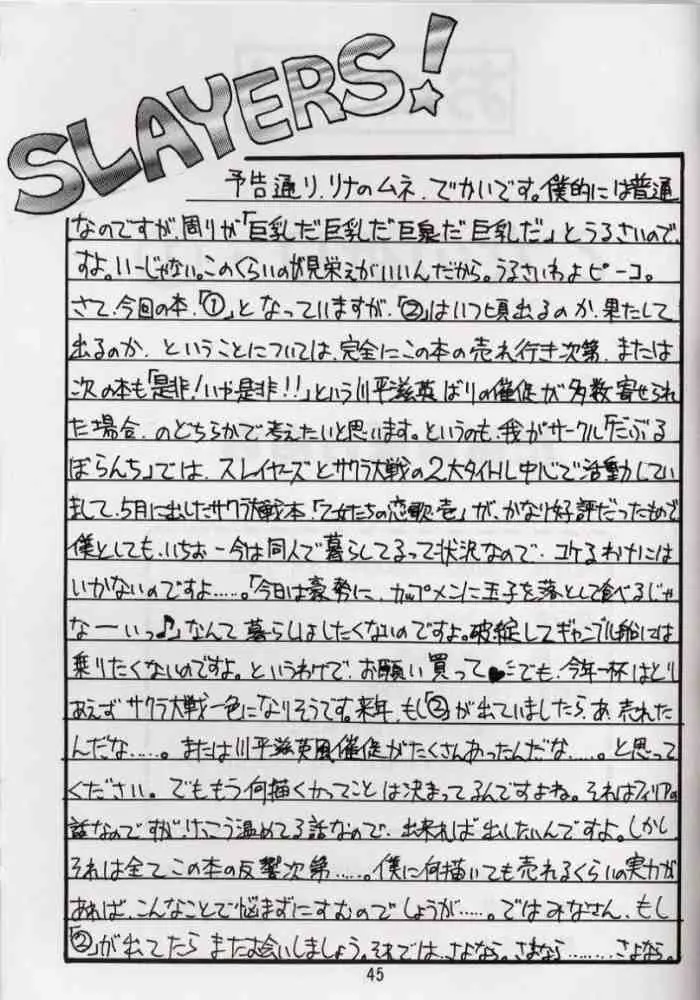 SLAYERS!
予告通り、リナのムネ、でかいです。僕的には普通
なのですが、周りが「巨乳だ巨乳だ巨泉だ巨乳だ」とうるさいので
すよ。いーじゃない。このくらいのが見栄えがいいんだから。うるさいわよピーコ。
さて、今回の本、「①」となっていますが、「②」はいつ頃出るのか、果たして
出るのか、ということについては、完全にこの本の売れ行き次第、または
次の本も「是非!いや是非!!」という川平滋英ばりの催促が多数寄せられ
た場合、のどちらかで考えたいと思います。というのも、我がサークル『だぶる
ぼらんち』では、スレイヤーズとサクラ大戦の2大タイトル中心で活動してい
まして、5月に出したサクラ大戦本、「乙女たちの恋歌・壱」が、かなり好評だったもので
僕としても、いちおー今は同人で暮らしてるって状況なので、コケるわけには
いかないのですよ……。「今日は豪勢に、カップメンに玉子を落として食べるじゃ
なーいっ♪」なんて暮らしはしたくないのですよ。破綻してギャンブル船には
乗りたくないのですよ。というわけで、お願い買って♥でも、今年一杯はとり
あえずサクラ大戦一色になりそうです。来年、もし「②」が出ていましたら、あ、売れた
んだな……。または川平滋英風催促がたくさんあったんだな……。と思って
ください。でももう何描くかってことは決まってるんですよね。それはフィリアの
話なのですが、けっこう温めてる話なので、出来れば出したいんですよ。しかし
それは全てこの本の反響次第……。僕に何描いても売れるくらいの実力が
あれば、こんなことで悩まずにすむのでしょうが……。ではみなさん、もし
「②」が出てたらまたお会いしましょう。それでは、さよなら。さよなら………さよなら。
45